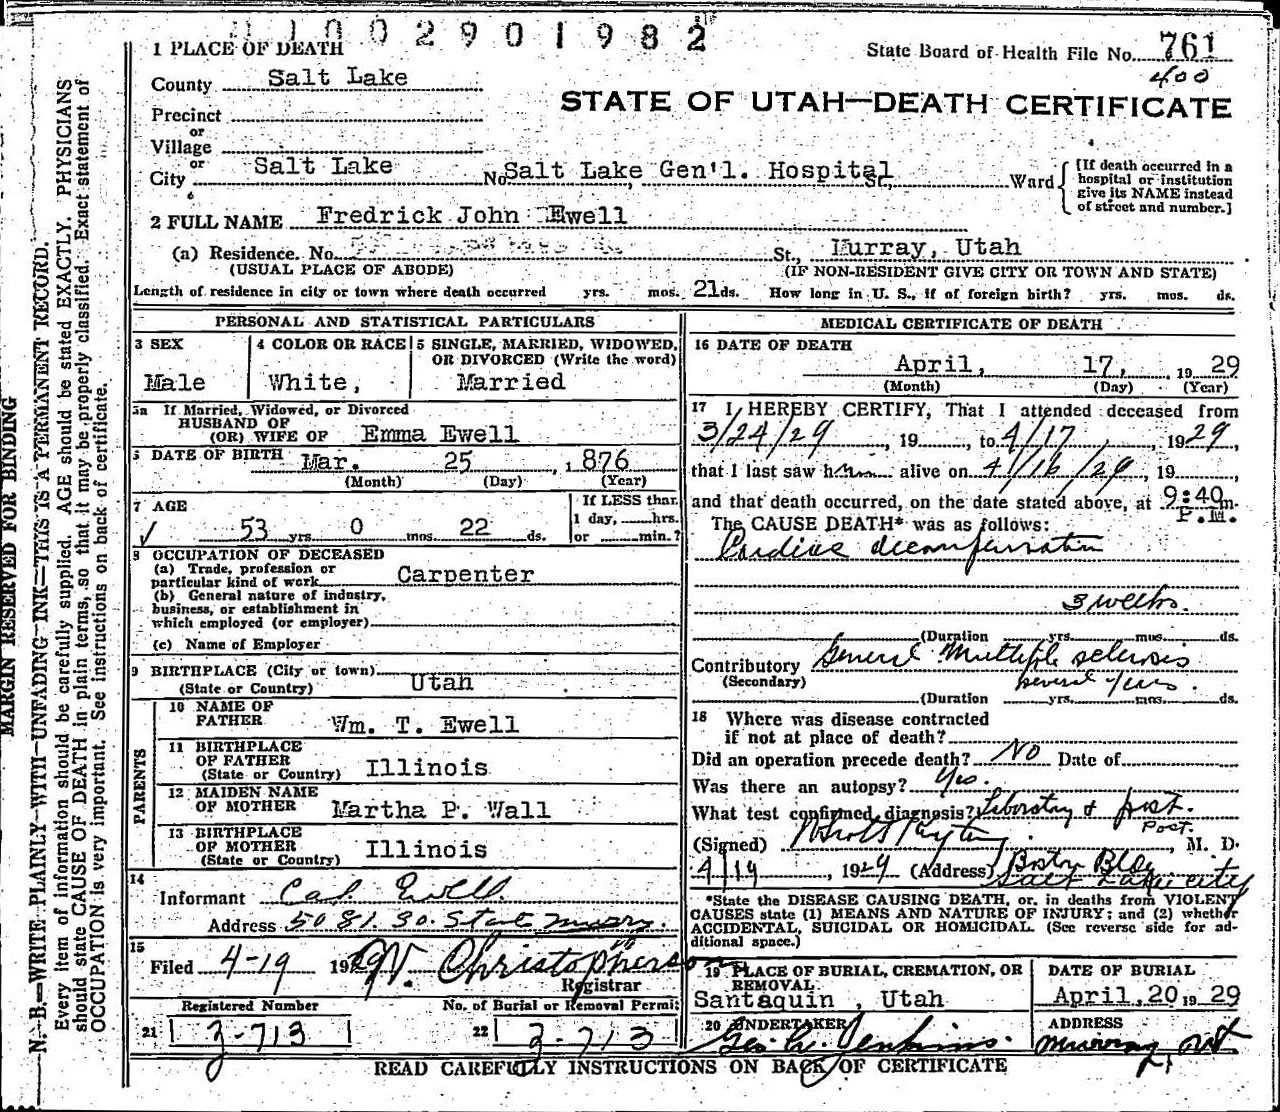 1002901982
1 PLACE OF DEATH
State Board of Health File No. 761
400
County Salt Lake
STATE OF UTAH—DEATH CERTIFICATE
Precinct
or
Village
or
City Salt Lake No. Salt Lake Gen'l. Hospital St., Ward
[If death occurred in a hospital or institution give its NAME instead of street and number.]
2 FULL NAME Fredrick John Ewell
(a) Residence. No. St., Murray, Utah
(USUAL PLACE OF ABODE) (IF NON-RESIDENT GIVE CITY OR TOWN AND STATE)
Length of residence in city or town where death occurred yrs. mos. 21 ds. How long in U. S., if of foreign birth? yrs. mos. ds.
PERSONAL AND STATISTICAL PARTICULARS
3 SEX 4 COLOR OR RACE 5 SINGLE, MARRIED, WIDOWED, OR DIVORCED (Write the word)
Male White, Married
5a If Married, Widowed, or Divorced
HUSBAND OF
(OR) WIFE OF Emma Ewell
DATE OF BIRTH Mar. 25, 1876
(Month) (Day) (Year)
7 AGE If LESS than
1 day, hrs.
53 yrs. 0 mos. 22 ds. or min.?
8 OCCUPATION OF DECEASED
(a) Trade, profession or
particular kind of work Carpenter
(b) General nature of industry,
business, or establishment in
which employed (or employer)
(c) Name of Employer
9 BIRTHPLACE (City or town)
(State or Country) Utah
PARENTS
10 NAME OF
FATHER Wm. T. Ewell
11 BIRTHPLACE
OF FATHER
(State or Country) Illinois
12 MAIDEN NAME
OF MOTHER Martha P. Wall
13 BIRTHPLACE
OF MOTHER
(State or Country) Illinois
14
Informant Ewell
Address 5081 So. State Murray.
15
Filed 4-19 1929 Christopherson
Registrar
Registered Number No. of Burial or Removal Permit
21 Z-713 22 Z-713
MEDICAL CERTIFICATE OF DEATH
16 DATE OF DEATH
April, 17, 1929
(Month) (Day) (Year)
17 I HEREBY CERTIFY, That I attended deceased from
3/24/29, 19 to 4/17, 1929,
that I last saw him alive on 4/16/29, 19
and that death occurred, on the date stated above, at 9:40 m.
P.M.
The CAUSE DEATH* was as follows:
Cardiac decompensation
3 weeks.
(Duration yrs. mos. ds.
Contributory General Multiple sclerosis
(Secondary) several years.
(Duration yrs. mos. ds.
18 Where was disease contracted
if not at place of death?
Did an operation precede death? No Date of
Was there an autopsy? Yes.
What test confirmed diagnosis? Laboratory & post.
Post.
(Signed) , M. D.
4/19, 1929 (Address) Boston Bldg
Salt Lake City
*State the DISEASE CAUSING DEATH, or, in deaths from VIOLENT
CAUSES state (1) MEANS AND NATURE OF INJURY; and (2) whether
ACCIDENTAL, SUICIDAL OR HOMICIDAL. (See reverse side for ad-
ditional space.)
19 PLACE OF BURIAL, CREMATION, OR REMOVAL DATE OF BURIAL
Santaquin, Utah April, 20 1929
20 UNDERTAKER ADDRESS
Geo. W. Jenkins. Murray, Ut
READ CAREFULLY INSTRUCTIONS ON BACK OF CERTIFICATE
MARGIN RESERVED FOR BINDING
N. B.—WRITE PLAINLY—WITH—UNFADING—INK—THIS IS A PERMANENT RECORD.
Every item of information should be carefully supplied. AGE should be stated EXACTLY. PHYSICIANS
should state CAUSE OF DEATH in plain terms, so that it may be properly classified. Exact statement of
OCCUPATION is very important. See instructions on back of certificate.